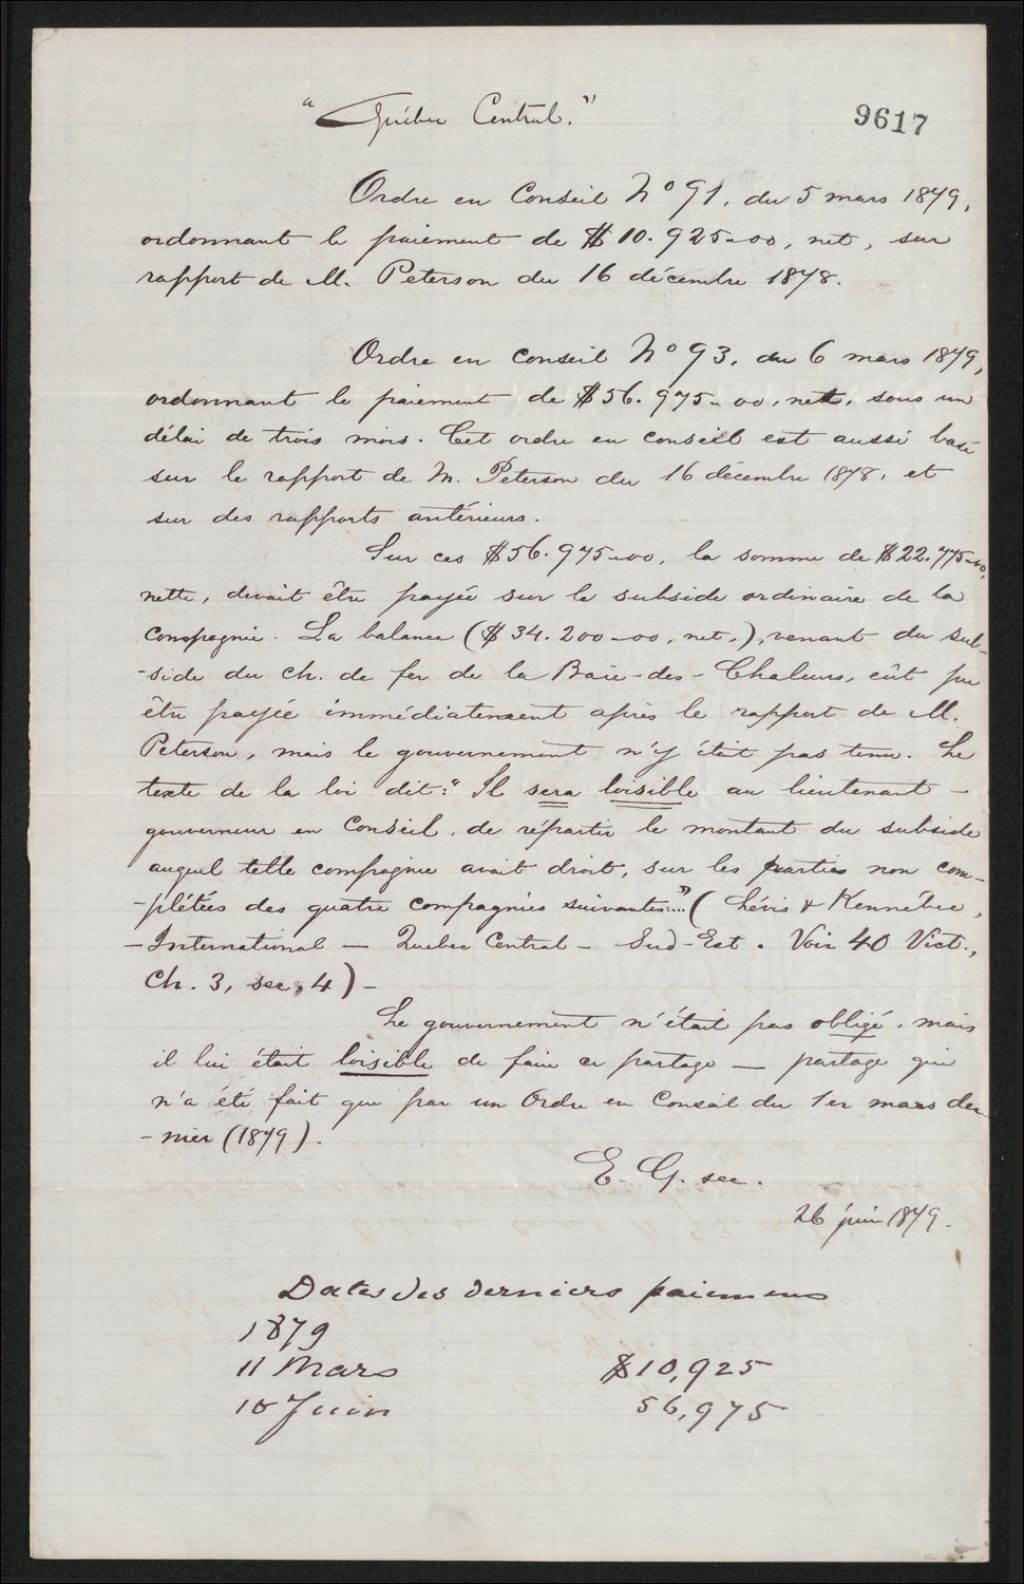 "Québec Central."
9617
Ordre en Conseil No 91, du 5 mars 1879,
ordonnant le paiement de $10.925-00, net, sur
rapport de M. Peterson du 16 décembre 1878.
Ordre en Conseil No 93, du 6 mars 1879,
ordonnant le paiement de $56.975-00, nett, sous un
délai de trois mois. Cet ordre en conseil est aussi basé
sur le rapport de M. Peterson du 16 décembre 1878, et
sur des rapports antérieurs.
Sur ces $56.975-00, la somme de $22.775-00,
nette, devait être payée sur le subside ordinaire de la
Compagnie. La balance ($34.200-00, net,), venant du sub-
-side du ch. de fer de la Baie-des-Chaleurs, eût pu
être payée immédiatement après le rapport de M.
Peterson, mais le gouvernement n'y était pas tenu. Le
texte de la loi dit: "Il sera loisible au lieutenant-
gouverneur en Conseil, de répartir le montant du subside
auquel telle compagnie avait droit, sur les parties non com-
-plétées des quatre compagnies suivantes...." (Lévis & Kennébec,
- International - Quebec Central - Sud-Est. Voir 40 Vict.,
Ch. 3, sec, 4) -
Le gouvernement n'était pas obligé, mais
il lui était loisible de faire ce partage — partage qui
n'a été fait que par un Ordre en Conseil du 1er mars der
-nier (1879).
E. G. sec.
26 juin 1879.
Dates des derniers paiemens
1879
11 Mars $10,925
10 Juin 56,975